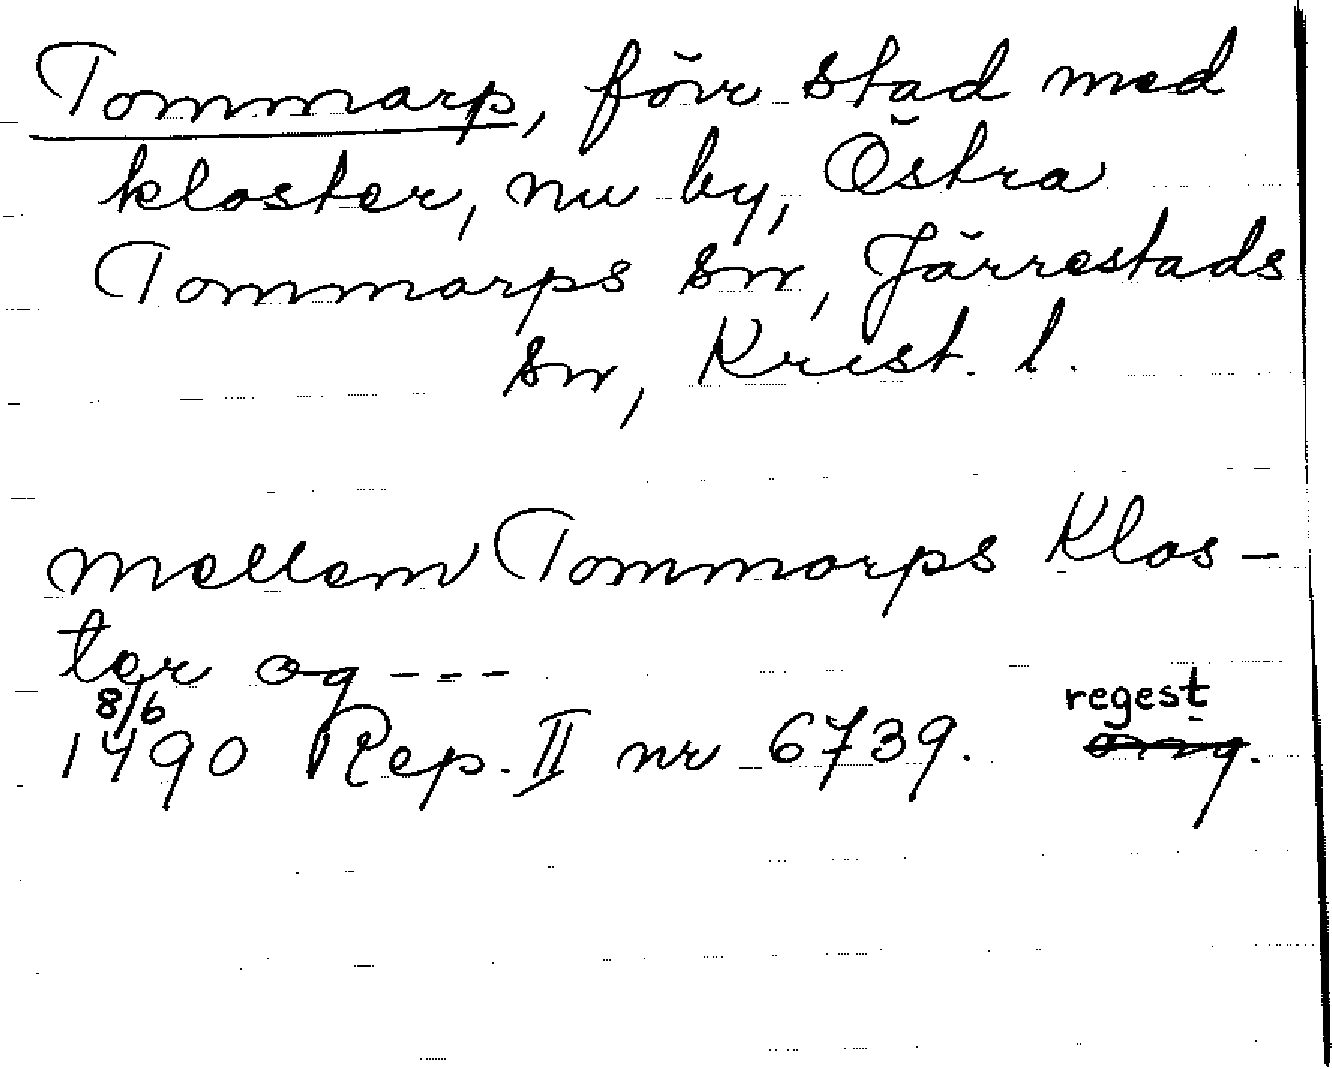 Tommarp, förr stad med
kloster, nu by, Östra
Tommarps sn, Järrestads
sn, Krist. l.
mellem Tommarps Klos-
ter og ---
8/6
1490 Rep. II nr 6739. regest